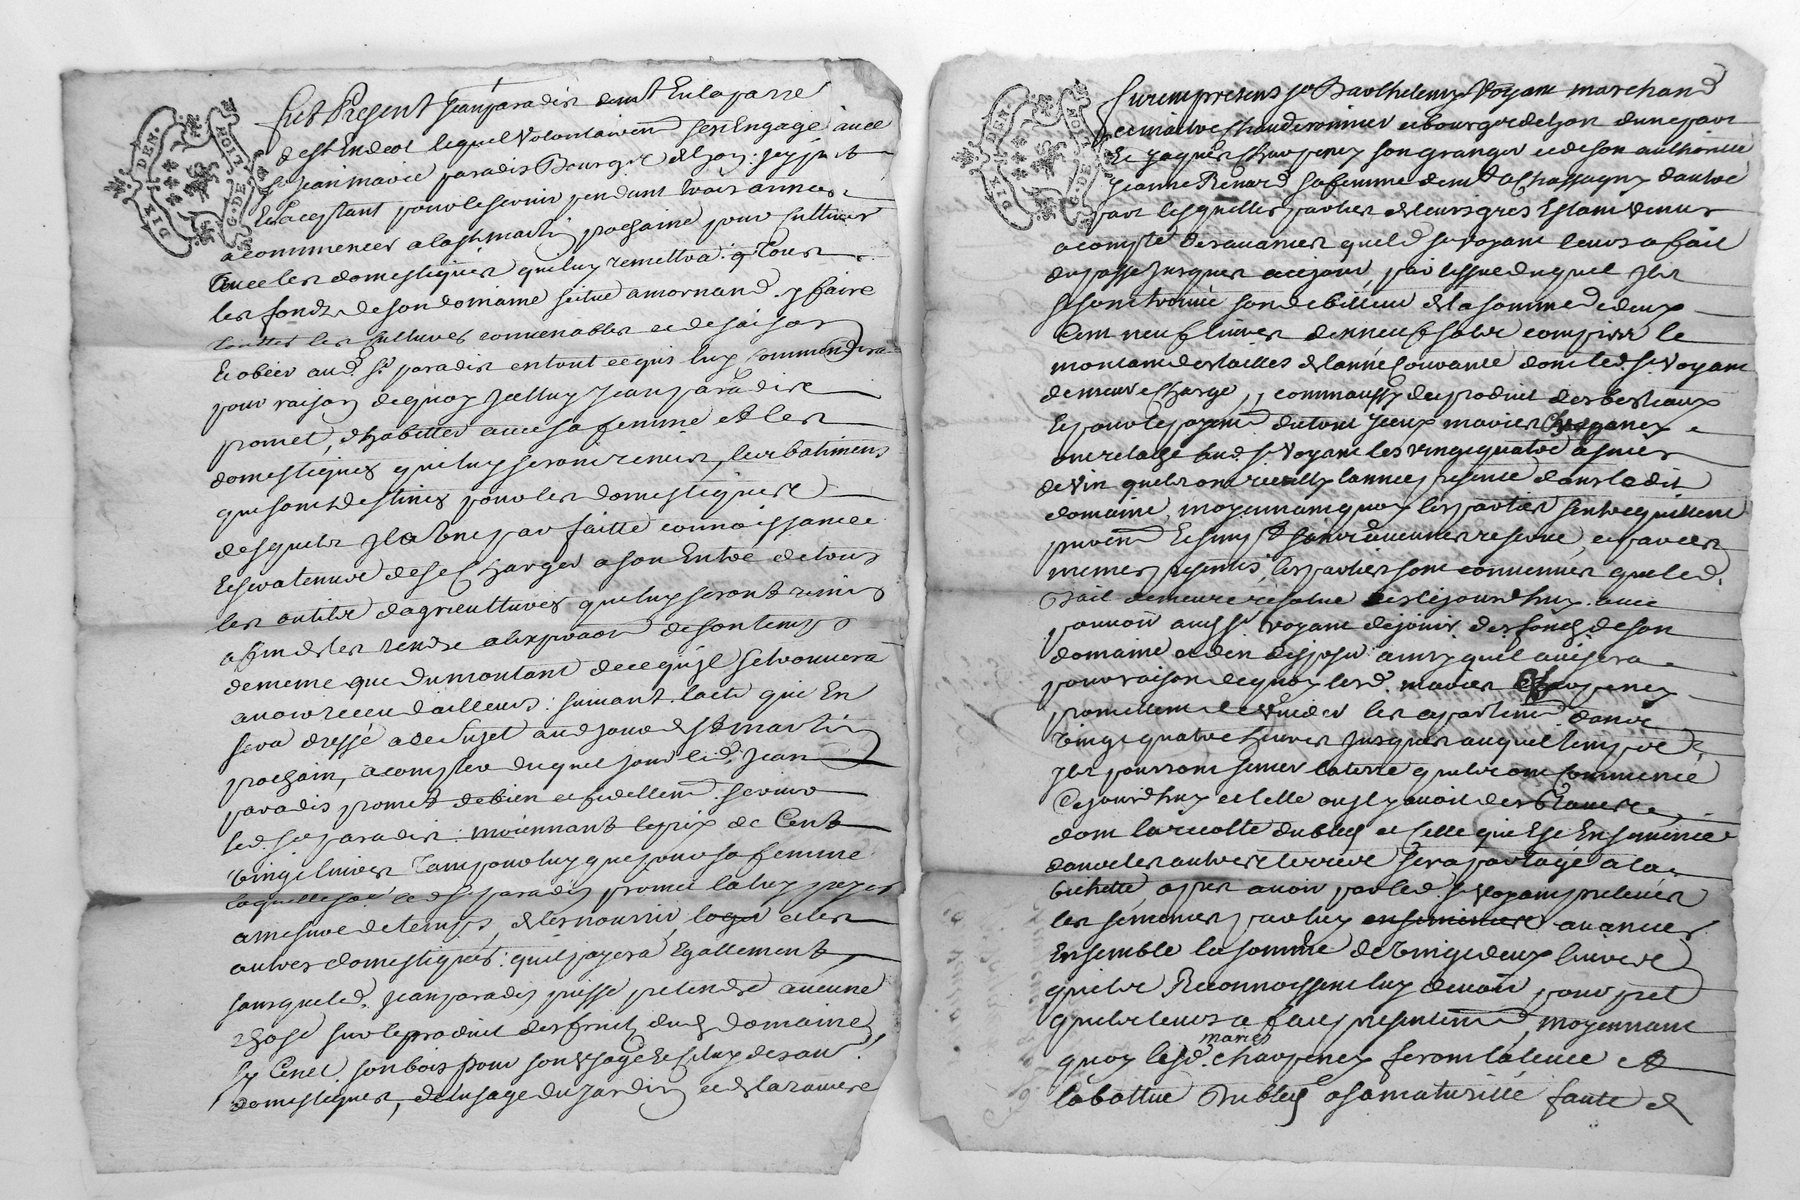 DIX DEN.
G. DE LION
fut Present Jean paradis demt En la parre
de st Andeol lequel volontairemt sest Engagé avec
Sr Jean marie paradis Bourgs de Lyon : icy psnt
Et acceptant pour le servir pendant trois années
a commencer a la st martin prochaine pour cultiver
avec les domestiques que luy remettra : Tous
les fonds de son domaine situé a mornand, y faire
touttes les cultures convenables et de saison
Et obeir aud. Sr paradis en tout ce quil luy commendera
pour raison de quoy Jcelluy Jean paradis
promet, dhabitter avec sa femme et les
domestiques qui luy seront remis, les batimens
qui sont destinés pour les domestiques
desquels Jl a Une parfaitte connoissance
Et sera tenu de se charger a son Entrée de tous
les outils dagricultures qui luy seront remis
afin de les rendre a lexpiraon de son temps
de meme que du montant de ce qu'jl se trouvera
avoir receu dailleurs : suivant lacte qui En
sera dressé a ce sujet aud jour de st martin
prochain, a compter duquel jour led. Jean
paradis promet de bien et fidellemt servir
led. Sr paradis : moiennant le prix de Cent
vingt livres Tant pour luy que pour sa femme
laquelle somme led Sr paradis promet la luy payer
a mesure de temps, de les nourrir, loger et les
autres domestiques : quil payera Egallement
sans que led. Jean paradis puisse pretendre aucune
chose sur le produit des fruits dud. domaine
sy ce nest son bois pour son usage Et celuy desd.
domestiques, de lusage du jardin et de la raviere
DIX DEN.
G. DE LION
furent presens Sr Barthelemy Voyant marchand
Et maitre Chauderonnier et bourgs de Lyon dune part
Et Jaques Charpeney son granger et de son authorité
Jeanne Renard sa femme demt a Chassagny dautre
part lesquelles parties de leurs gres Estant venus
a compte des avances que led Sr Voyant leurs a fait
du passé Jusques a ce jour, par lissue duquel Jls
se sont trouvé son debiteur de la somme de deux
Cent neuf livres dixneuf sols compris le
montant des tailles de lannée Courante dont led. Sr Voyant
demeure chargé, comm aussy du produit des bestiaux
Et pour le payemt du tout Jceux mariés Charpeney
ont relaché aud. Sr Voyant les vingt quatre asnées
de vin quils ont recully lannée presente dans ledit
domaine, moyennant quoy les parties sentrequittent
Et par ces
memes presentes, les parties sont convenues que led.
Bail demeure resolue des cejourdhuy avec
pouvoir aud Sr Voyant de jouir des fonds de son
domaine et den disposer ainsy quil avisera
pour raison de quoy lesd. mariés Charpeney
promettent de vuider les apartemts dans
vingt quatre heures Jusques auquel temps
Jls pourront semer la terre quils ont Commencé
Cejourdhuy et celle ou jl y avoit des
dont la recolte du bled et celle qui Est Ensemencé
dans les autres terres sera partagé a la
bichette apres avoir par led. Sr Voyant prelevés
les semences par luy avancés
Ensemble la somme de vingt deux livres
quils Reconnoissent luy devoir, pour pret
quils leurs a fait presentemt, moyennant
mariés
quoy lesd. Charpeney feront la leveé et
labattue du bled a sa maturitté faute de